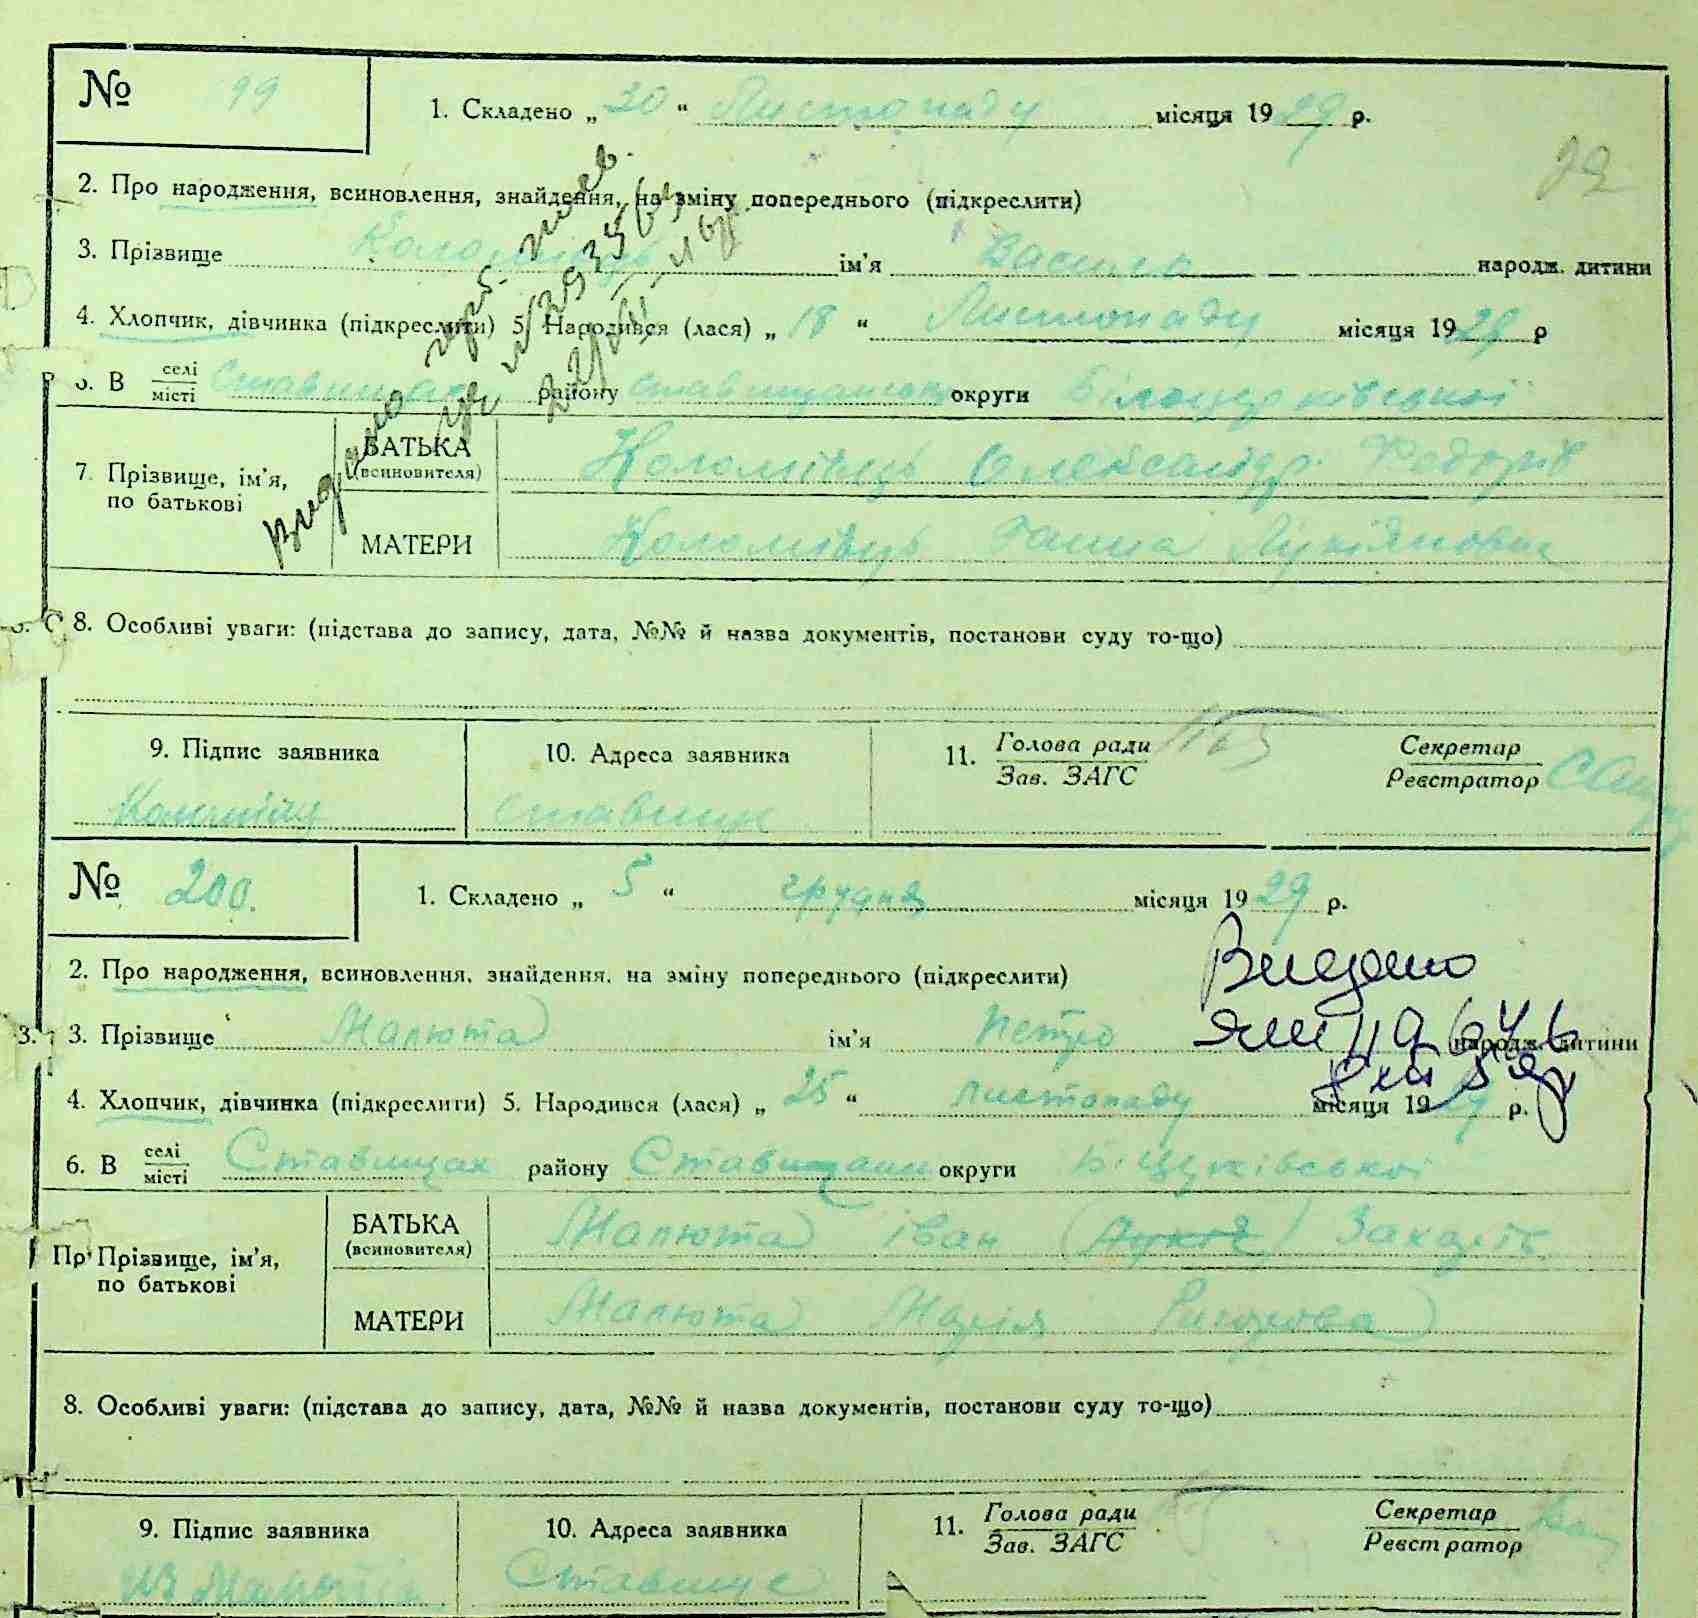 № 99 1. Складено „30“ Листопаду місяця 1929 р.
2. Про народження, всиновлення, знайдення, на зміну попереднього (підкреслити)
3. Прізвище Коломієць ім'я Василь народж. дитини
4. Хлопчик, дівчинка (підкреслити) 5. Народився (лася) „18“ Листопаду місяця 1929 р
6. В селі місті Ставищах району Ставищанськ округи Білоцерківської
7. Прізвище, ім'я, по батькові БАТЬКА (всиновителя) Коломієць Олександр Федорів
МАТЕРИ Коломієць Ганна Лукіяновна
Видано
8. Особливі уваги: (підстава до запису, дата, №№ й назва документів, постанови суду то-що)
9. Підпис заявника 10. Адреса заявника 11. Голова ради Зав. ЗАГС Секретар Реєстратор
Ставище
№ 200. 1. Складено „5“ грудня місяця 1929 р.
2. Про народження, всиновлення, знайдення, на зміну попереднього (підкреслити)
Видано
3. Прізвище Малюта ім'я Петро народж. дитини
4. Хлопчик, дівчинка (підкреслити) 5. Народився (лася) „25“ листопаду місяця 1929 р.
6. В селі місті Ставищах району Ставищани округи Б.Цуківської
Прізвище, ім'я, по батькові БАТЬКА (всиновителя) Малюта Іван
МАТЕРИ Малюта Марія
8. Особливі уваги: (підстава до запису, дата, №№ й назва документів, постанови суду то-що)
9. Підпис заявника 10. Адреса заявника 11. Голова ради Зав. ЗАГС Секретар Реєстратор
Ставище